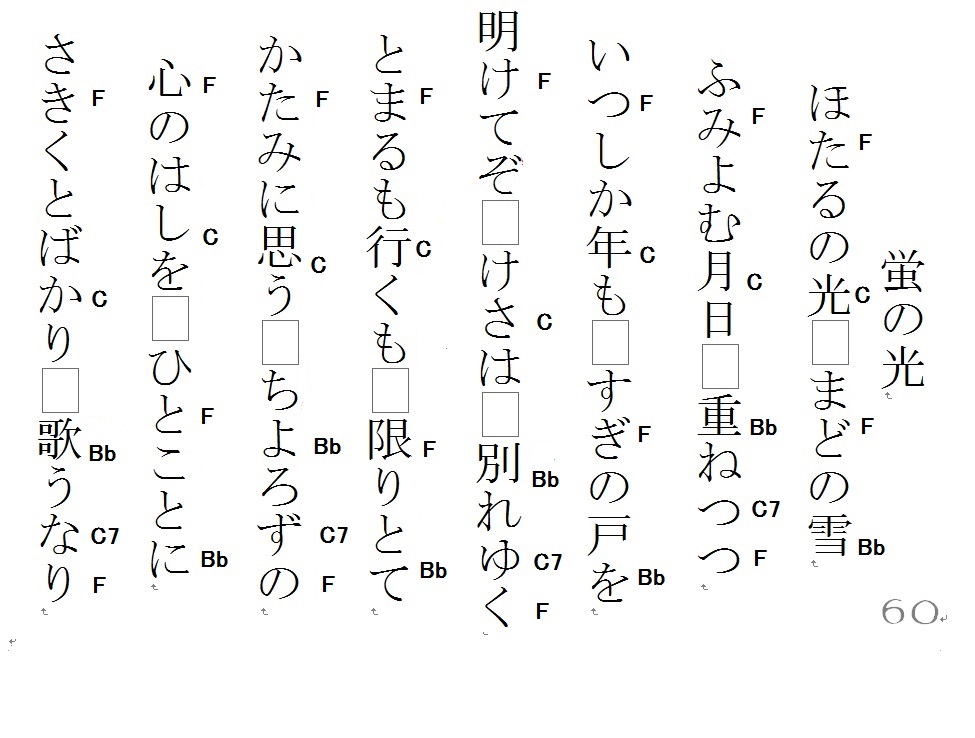 蛍の光
ほたるの光□まどの雪
F C F Bb
ふみよむ月日□重ねつつ
F C Bb C7 F
いつしか年も□すぎの戸を
F C F Bb
明けてぞ□けさは□別れゆく
F C Bb C7 F
とまるも行くも□限りとて
F C F Bb
かたみに思う□ちよろずの
F C Bb C7 F
心のはしを□ひとことに
F C F Bb
さきくとばかり□歌うなり
F C Bb C7 F
60